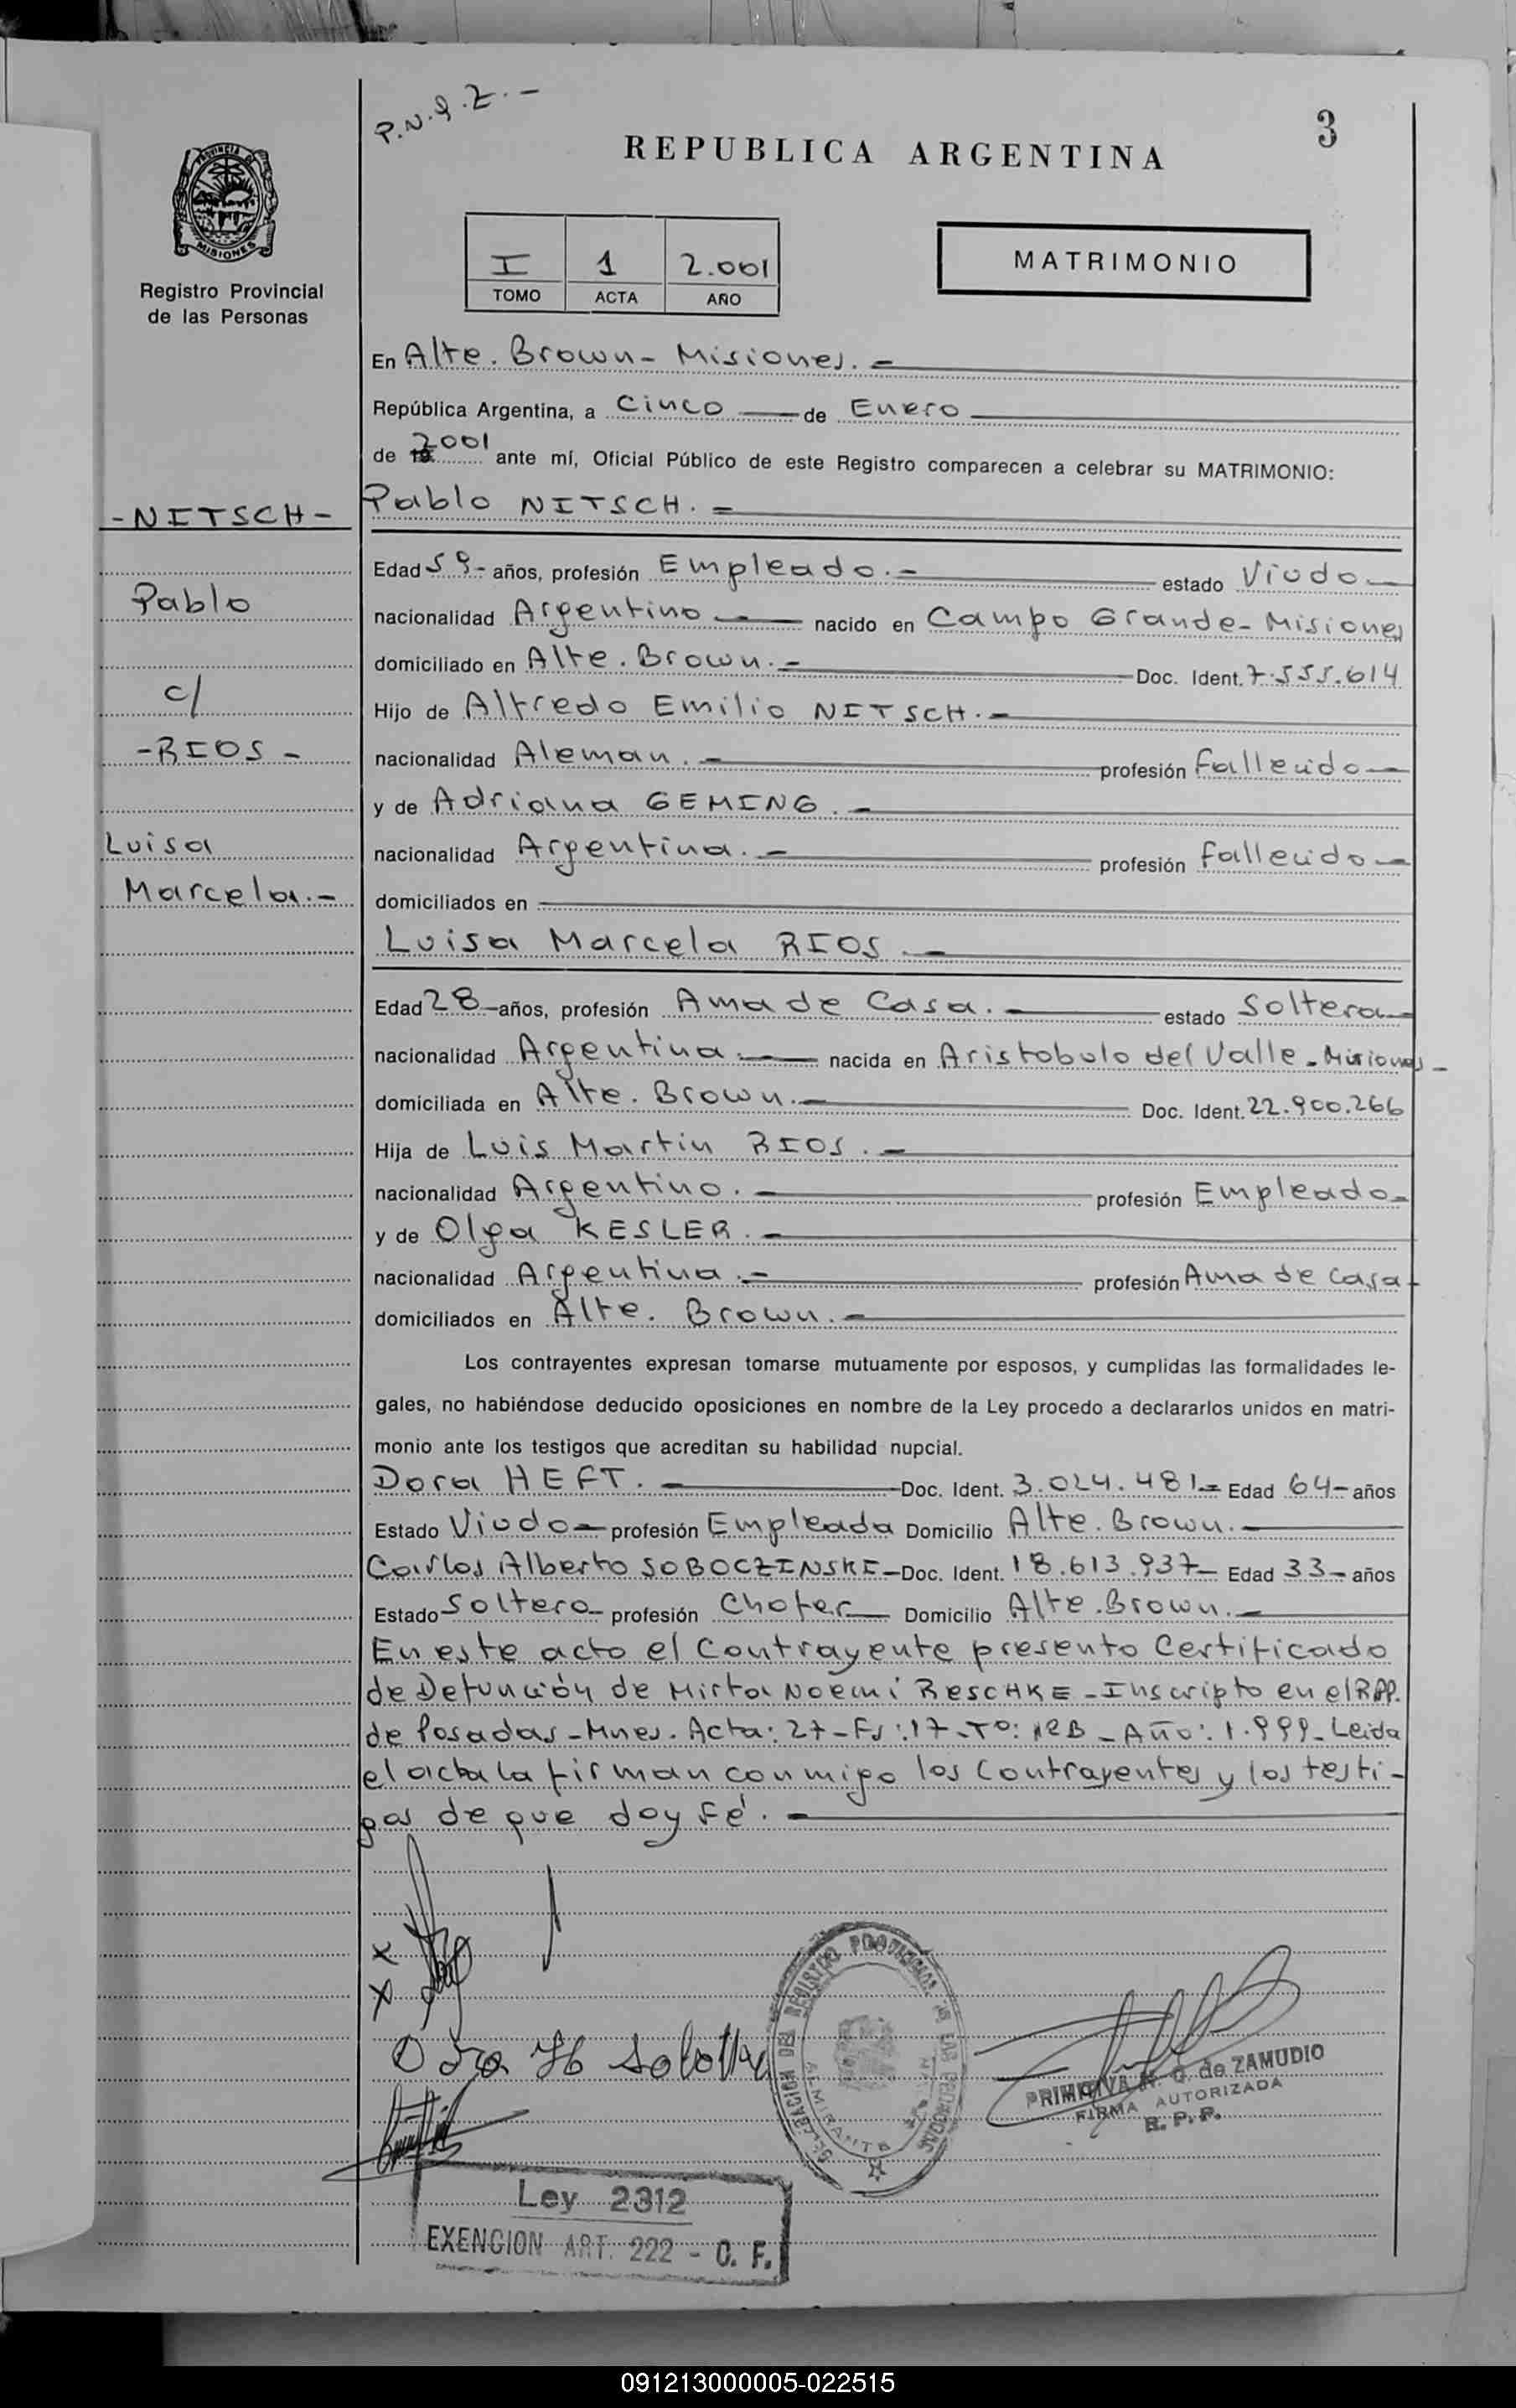 P.N.g.Z.-
3
REPUBLICA ARGENTINA
PROVINCIA DE
MISIONES
Registro Provincial
de las Personas
I 1 2.001
TOMO ACTA AÑO
MATRIMONIO
En Alte. Brown - Misiones.-
República Argentina, a Cinco de Enero
de 19 2001 ante mí, Oficial Público de este Registro comparecen a celebrar su MATRIMONIO:
-NITSCH-
Pablo
c/
-RIOS-
Luisa
Marcela.-
Pablo NITSCH.-
Edad 59- años, profesión Empleado.- estado Viudo-
nacionalidad Argentino nacido en Campo Grande-Misiones
domiciliado en Alte. Brown.- Doc. Ident. 7.555.614
Hijo de Alfredo Emilio NITSCH.-
nacionalidad Aleman.- profesión Fallecido-
y de Adriana GEMING.-
nacionalidad Argentina.- profesión fallecido-
domiciliados en
Luisa Marcela RIOS.-
Edad 28- años, profesión Ama de Casa.- estado Soltera-
nacionalidad Argentina.- nacida en Aristobulo del Valle-Misiones-
domiciliada en Alte. Brown.- Doc. Ident. 22.900.266
Hija de Luis Martin RIOS.-
nacionalidad Argentino.- profesión Empleado-
y de Olga KESLER.-
nacionalidad Argentina.- profesión Ama de Casa-
domiciliados en Alte. Brown.-
Los contrayentes expresan tomarse mutuamente por esposos, y cumplidas las formalidades le-
gales, no habiéndose deducido oposiciones en nombre de la Ley procedo a declararlos unidos en matri-
monio ante los testigos que acreditan su habilidad nupcial.
Dora HEFT.- Doc. Ident. 3.024.481- Edad 64- años
Estado Viudo- profesión Empleada Domicilio Alte. Brown.-
Carlos Alberto SOBOCZINSKI- Doc. Ident. 18.613.937- Edad 33- años
Estado Soltero- profesión Chofer- Domicilio Alte. Brown.-
En este acto el Contrayente presento Certificado
de Defunción de Mirta Noemi RescHKE - Inscripto en el R.P.P.
de Posadas-Mnes. Acta: 27-Fs:17-Tº: 12B-Año: 1.999-Leida
el acta la firman conmigo los Contrayentes y los testi-
gos de que doy fé.-
x
x
DELEGACION DEL REGISTRO PROVINCIAL DE LAS PERSONAS
ALMIRANTE
PRIMITIVA N. G. de ZAMUDIO
FIRMA AUTORIZADA
R. P. P.
Ley 2312
EXENCION ART. 222 - C. F.
091213000005-022515